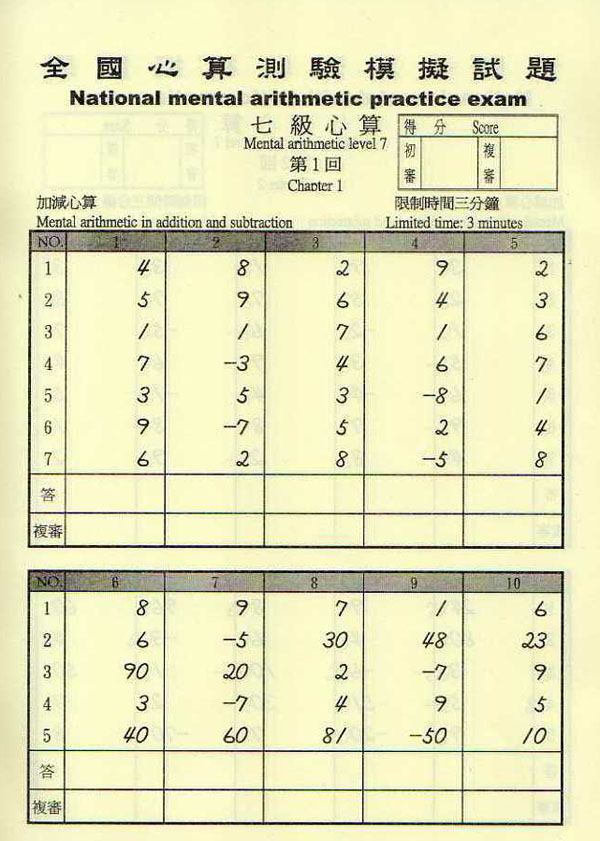 全國心算測驗模擬試題
National mental arithmetic practice exam
七級心算
Mental arithmetic level 7
第1回
Chapter 1
得分 Score
初審 複審
加減心算 限制時間三分鐘
Mental arithmetic in addition and subtraction Limited time: 3 minutes
NO. 1 2 3 4 5
1 4 8 2 9 2
2 5 9 6 4 3
3 1 1 7 1 6
4 7 -3 4 6 7
5 3 5 3 -8 1
6 9 -7 5 2 4
7 6 2 8 -5 8
答
複審
NO. 6 7 8 9 10
1 8 9 7 1 6
2 6 -5 30 48 23
3 90 20 2 -7 9
4 3 -7 4 9 5
5 40 60 81 -50 10
答
複審